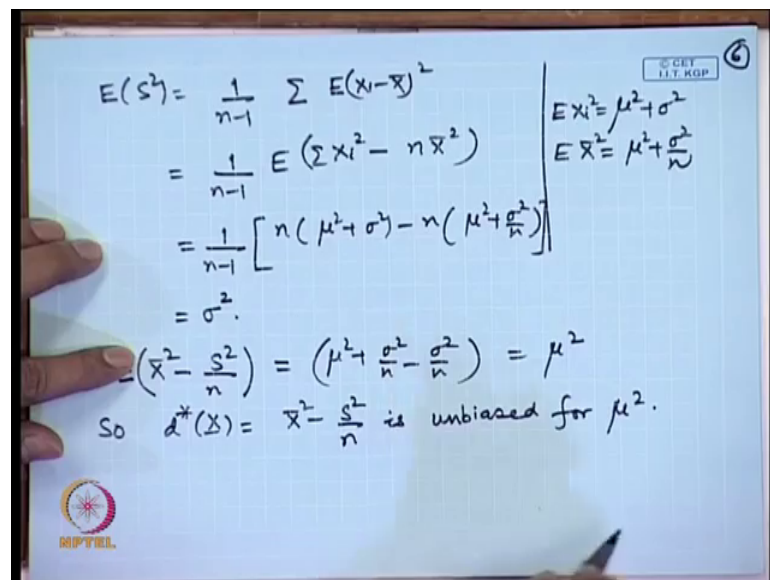 6
© CET
I.I.T. KGP
E(S²) = 1/(n-1) Σ E(xi - x̄)²
= 1/(n-1) E(Σxi² - nx̄²)
= 1/(n-1) [n(μ²+σ²) - n(μ²+σ²/n)]
= σ².
E xi² = μ²+σ²
E x̄² = μ²+σ²/n
(x̄² - S²/n) = (μ²+σ²/n - σ²/n) = μ²
So d*(X) = x̄² - S²/n is unbiased for μ².
NPTEL